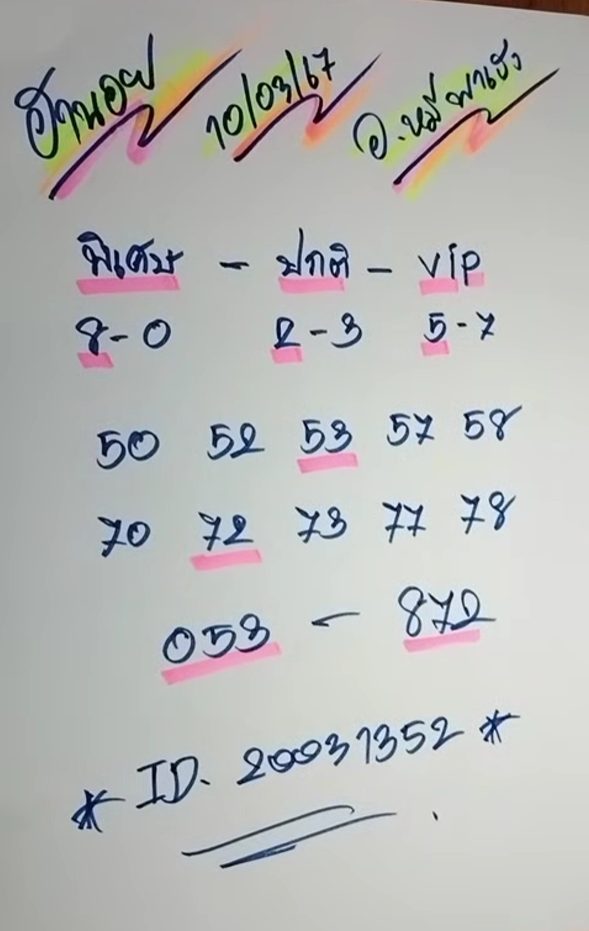 ฮานอย 10/03/67 อ.หมีพาเฮง
พิเศษ - ปกติ - vip
8-0 2-3 5-7
50 52 53 57 58
70 72 73 77 78
053 - 872
* ID. 20031352 *